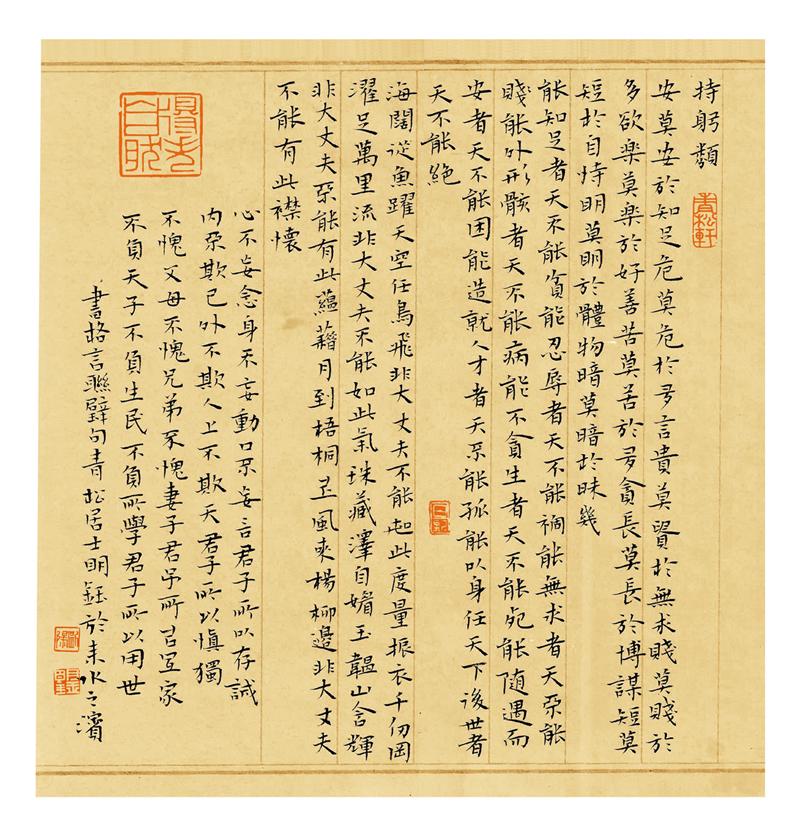 持躬類
青松軒
安莫安於知足危莫危於多言貴莫貴於無求賤莫賤於
多欲樂莫樂於好善苦莫苦於多貪長莫長於博謀短莫
短於自恃明莫明於體物暗莫暗於昧幾
能知足者天不能貧能忍辱者天不能禍能無求者天不能
賤能外形骸者天不能病能不貪生者天不能死能随遇而
安者天不能困能造就人才者天不能孤能以身任天下後世者
天不能絕
海闊從魚躍天空任鳥飛非大丈夫不能起此度量振衣千仞岡
濯足萬里流非大丈夫不能如此氣珠藏澤自媚玉韞山含輝
非大丈夫不能有此蘊藉月到梧桐上風來楊柳邊非大丈夫
不能有此襟懷
心不妄念身不妄動口不妄言君子所以存誠
內不欺己外不欺人上不欺天君子所以慎獨
不愧父母不愧兄弟不愧妻子君子所以宜家
不負天子不負生民不負所學君子所以用世
書格言聯璧句青松居士明鈺於耒水之濱